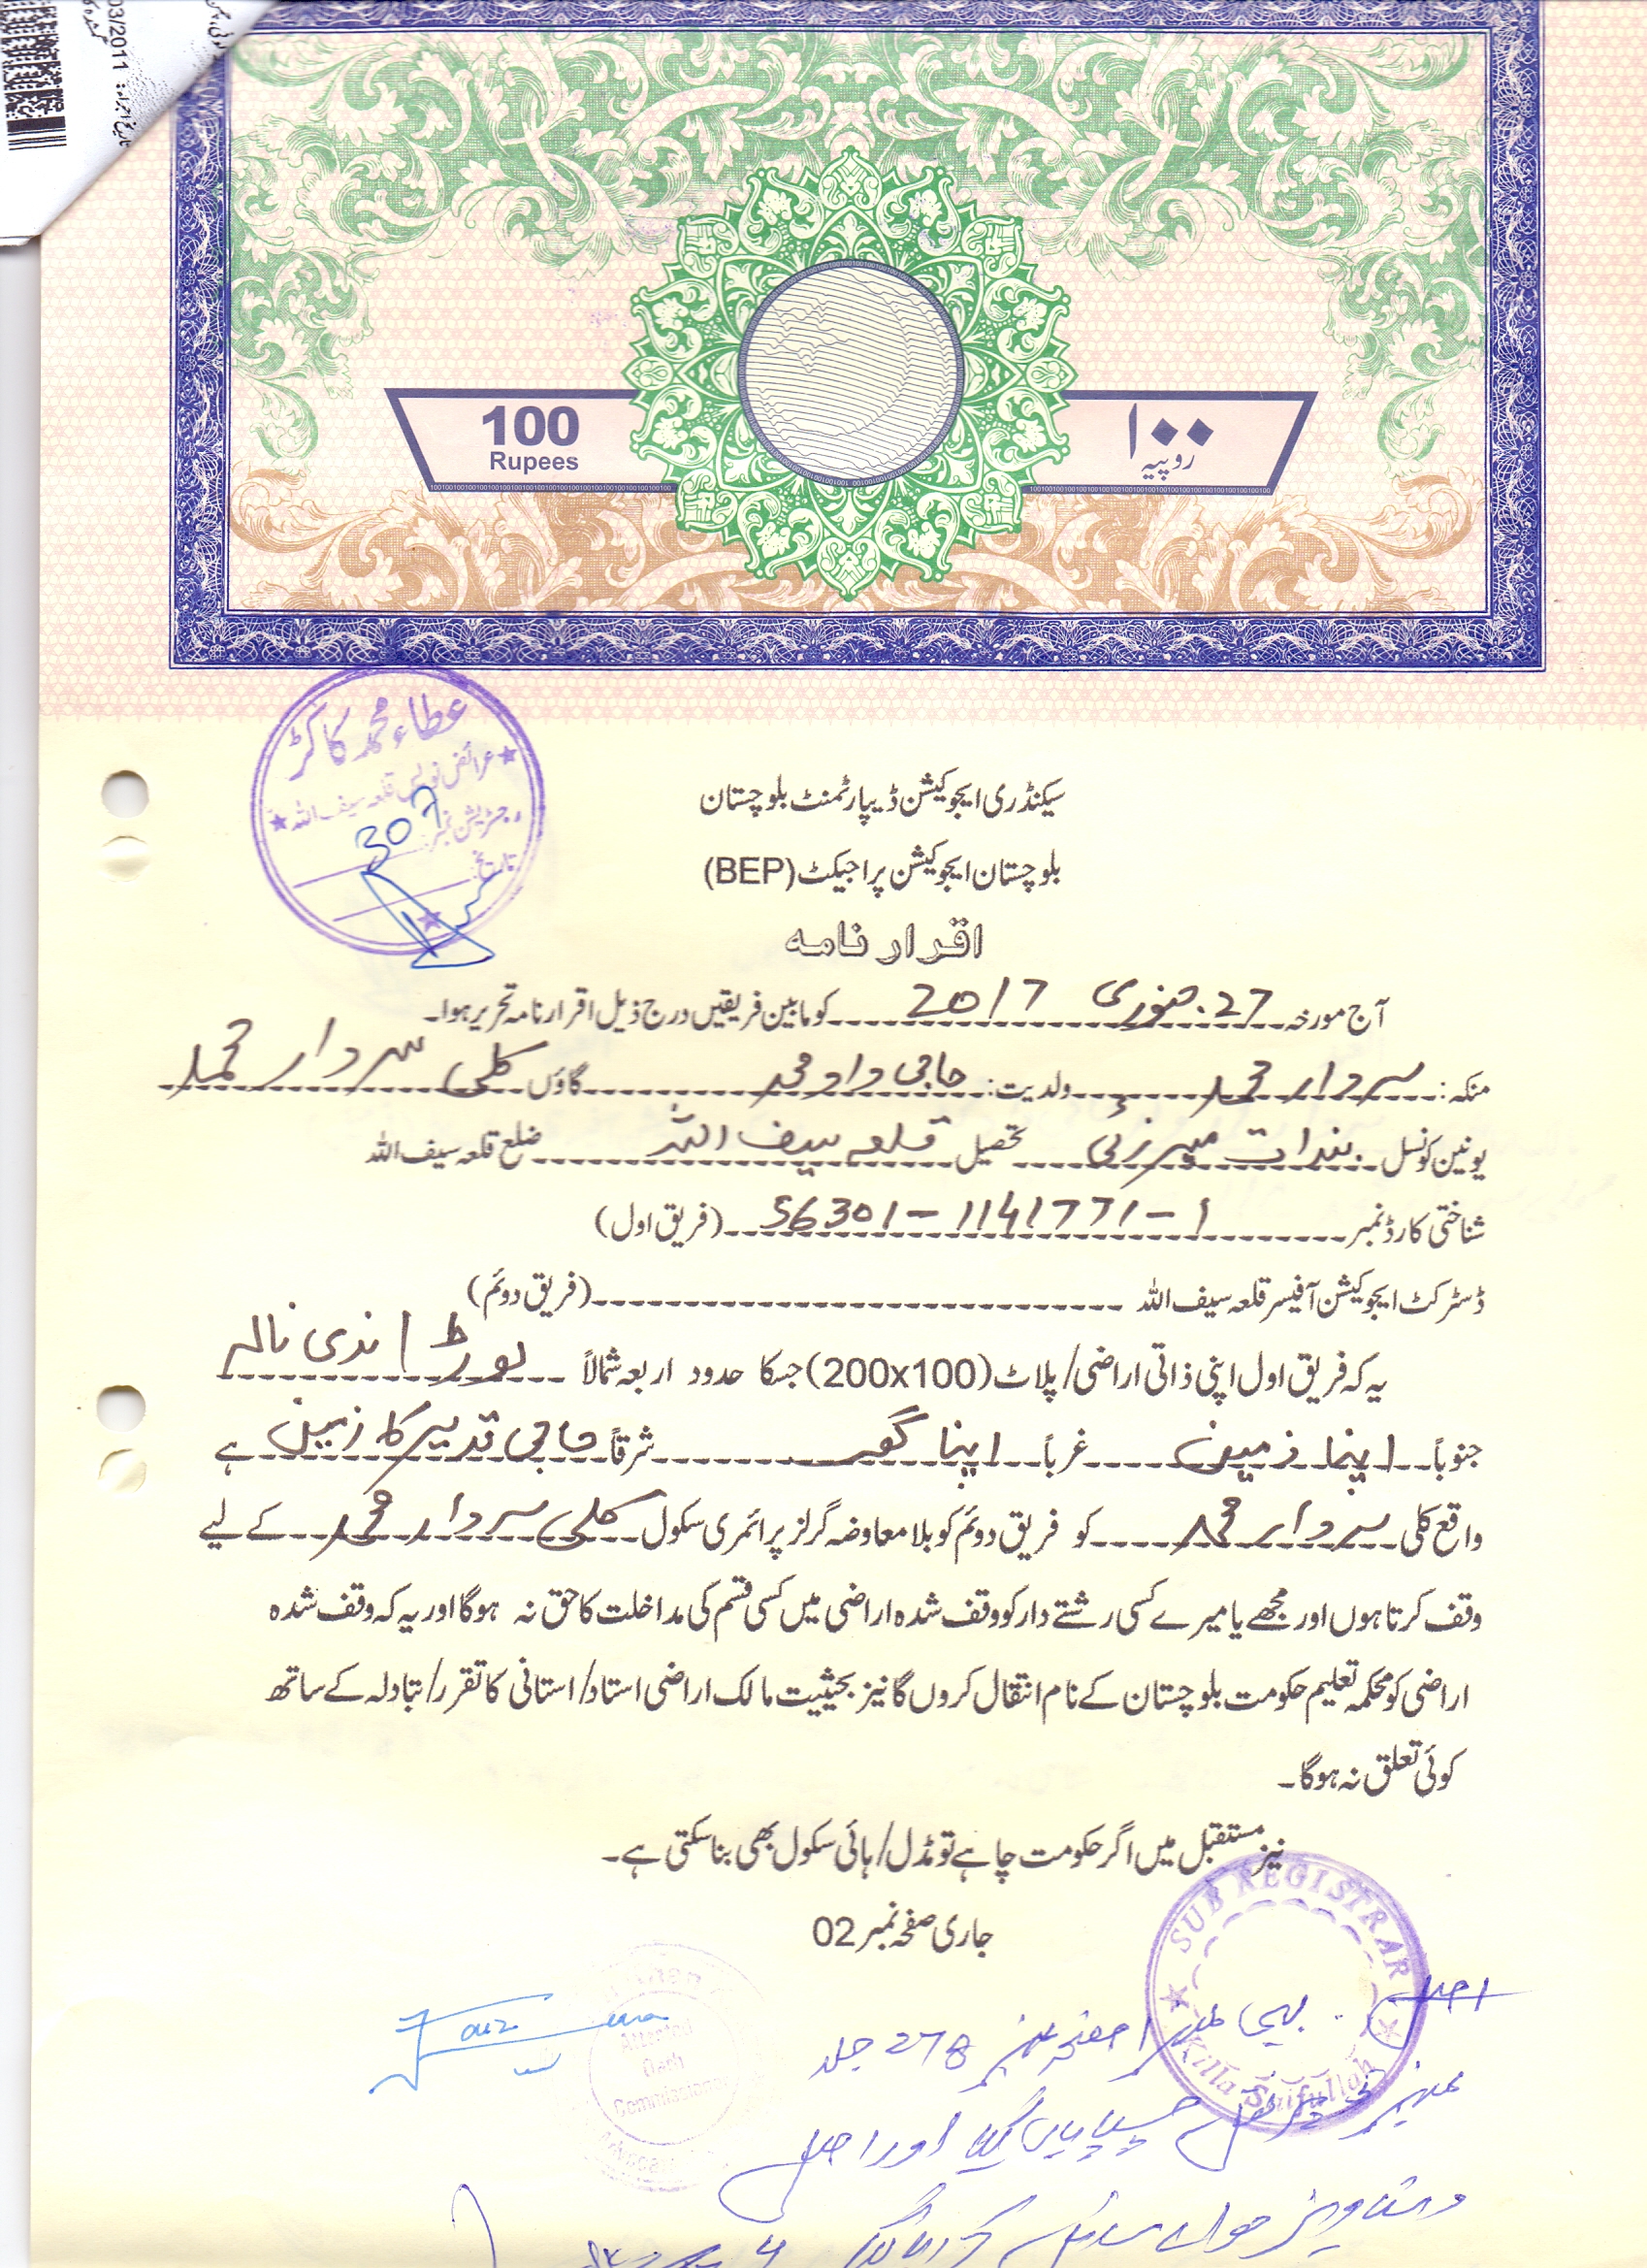 03/2011
100
Rupees
۱۰۰
روپیہ
عطاء محمد کاکڑ
عرائض نویس قلعہ سیف اللہ
رجسٹریشن نمبر 307
تاریخ
سیکنڈری ایجوکیشن ڈیپارٹمنٹ بلوچستان
بلوچستان ایجوکیشن پراجیکٹ (BEP)
اقرار نامہ
آج مورخہ 27. جنوری 2017 کو مابین فریقین درج ذیل اقرار نامہ تحریر ہوا۔
منکہ: سردار محمد ولدیت: حاجی داد محمد گاؤں کلی سردار محمد
یونین کونسل تحصیل قلعہ سیف اللہ ضلع قلعہ سیف اللہ
شناختی کارڈ نمبر 56301-1141771-1 (فریق اول)
ڈسٹرکٹ ایجوکیشن آفیسر قلعہ سیف اللہ (فریق دوئم)
یہ کہ فریق اول اپنی ذاتی اراضی/ پلاٹ (200x100) جسکا حدود اربعہ شمالاً ندی نالہ
جنوباً اپنا زمین غرباً اپنا گھر شرقاً حاجی کا زمین ہے
واقع کلی سردار محمد کو فریق دوئم کو بلا معاوضہ گرلز پرائمری سکول کلی سردار محمد کے لیے
وقف کرتا ہوں اور مجھے یا میرے کسی رشتے دار کو وقف شدہ اراضی میں کسی قسم کی مداخلت کا حق نہ ہوگا اور یہ کہ وقف شدہ
اراضی کو محکمہ تعلیم حکومت بلوچستان کے نام انتقال کروں گا نیز بحیثیت مالک اراضی استاد/ استانی کا تقرر/ تبادلہ کے ساتھ
کوئی تعلق نہ ہوگا۔
نیز مستقبل میں اگر حکومت چاہے تو مڈل/ ہائی سکول بھی بنا سکتی ہے۔
جاری صفحہ نمبر 02
SUB REGISTRAR
Killa Saifullah
Attested
Oath
Commissioner
صفحہ نمبر 278 جلد
اور اصل